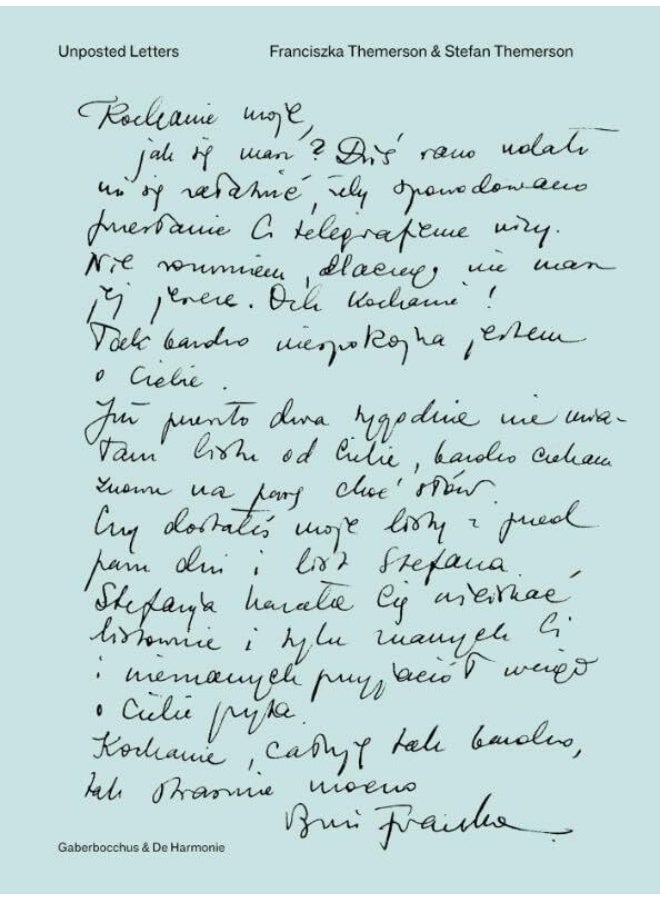 Unposted Letters
Franciszka Themerson & Stefan Themerson
Kochanie moje,
jak się masz? Dziś rano udało
mi się załatwić, żeby spowodowano
przesłanie Ci telegraficzne wizy.
Nie rozumiem, dlaczego nie masz
jej jeszcze. Och kochanie!
Tak bardzo niespokojna jestem
o Ciebie.
Już przeszło dwa tygodnie nie mia-
łam listu od Ciebie, bardzo czekam
znowu na parę choć słów.
Czy dostałeś moje listy z przed
paru dni i list Stefana.
Stefanja kazała Cię uściskać
listownie i tylu znanych Ci
i nieznanych przyjaciół wciąż
o Ciebie pyta.
Kochanie, całuję tak bardzo,
tak strasznie mocno
Franka
Gaberbocchus & De Harmonie